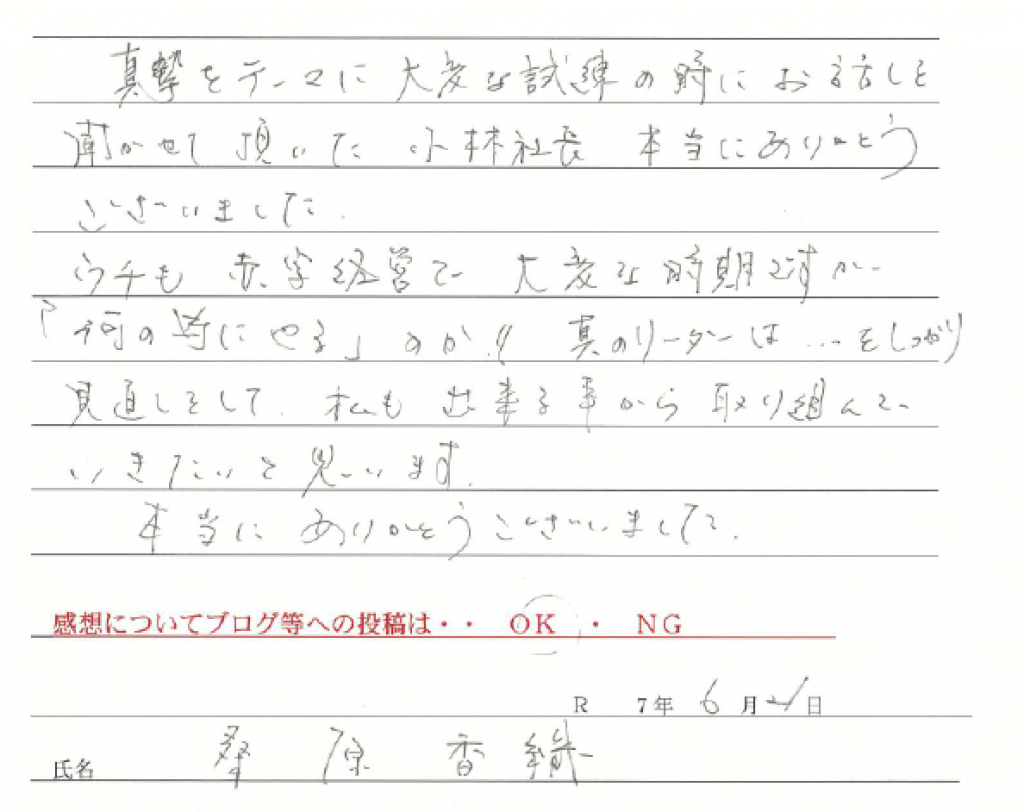 真摯をテーマに大変な試練の時にお話しを
聞かせて頂いた 小林社長 本当にありがとう
ございました.
ウチも 赤字経営で 大変な時期ですが..
「何の為にやる」のか!! 真のリーダーは…をしっかり
見直しをして. 私も 出来る事から 取り組んで
いきたいと思います.
本当に ありがとうございました.
感想についてブログ等への投稿は・・ OK ・ NG
R 7年 6月 日
氏名 桑原 香織